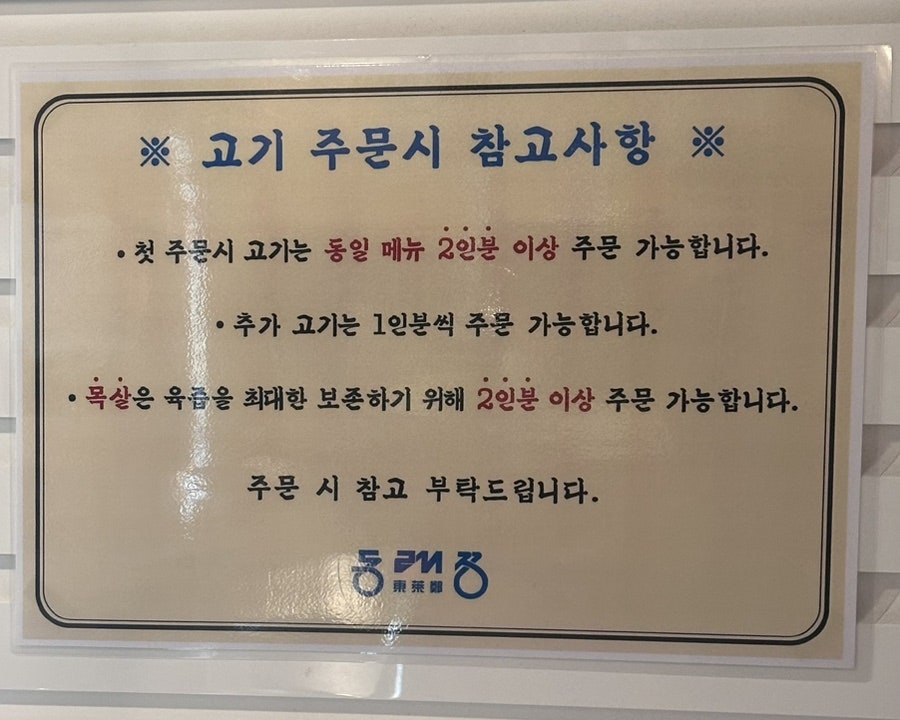 ※ 고기 주문시 참고사항 ※
• 첫 주문시 고기는 동일 메뉴 2인분 이상 주문 가능합니다.
• 추가 고기는 1인분씩 주문 가능합니다.
• 목살은 육즙을 최대한 보존하기 위해 2인분 이상 주문 가능합니다.
주문 시 참고 부탁드립니다.
동래정
東萊鄭